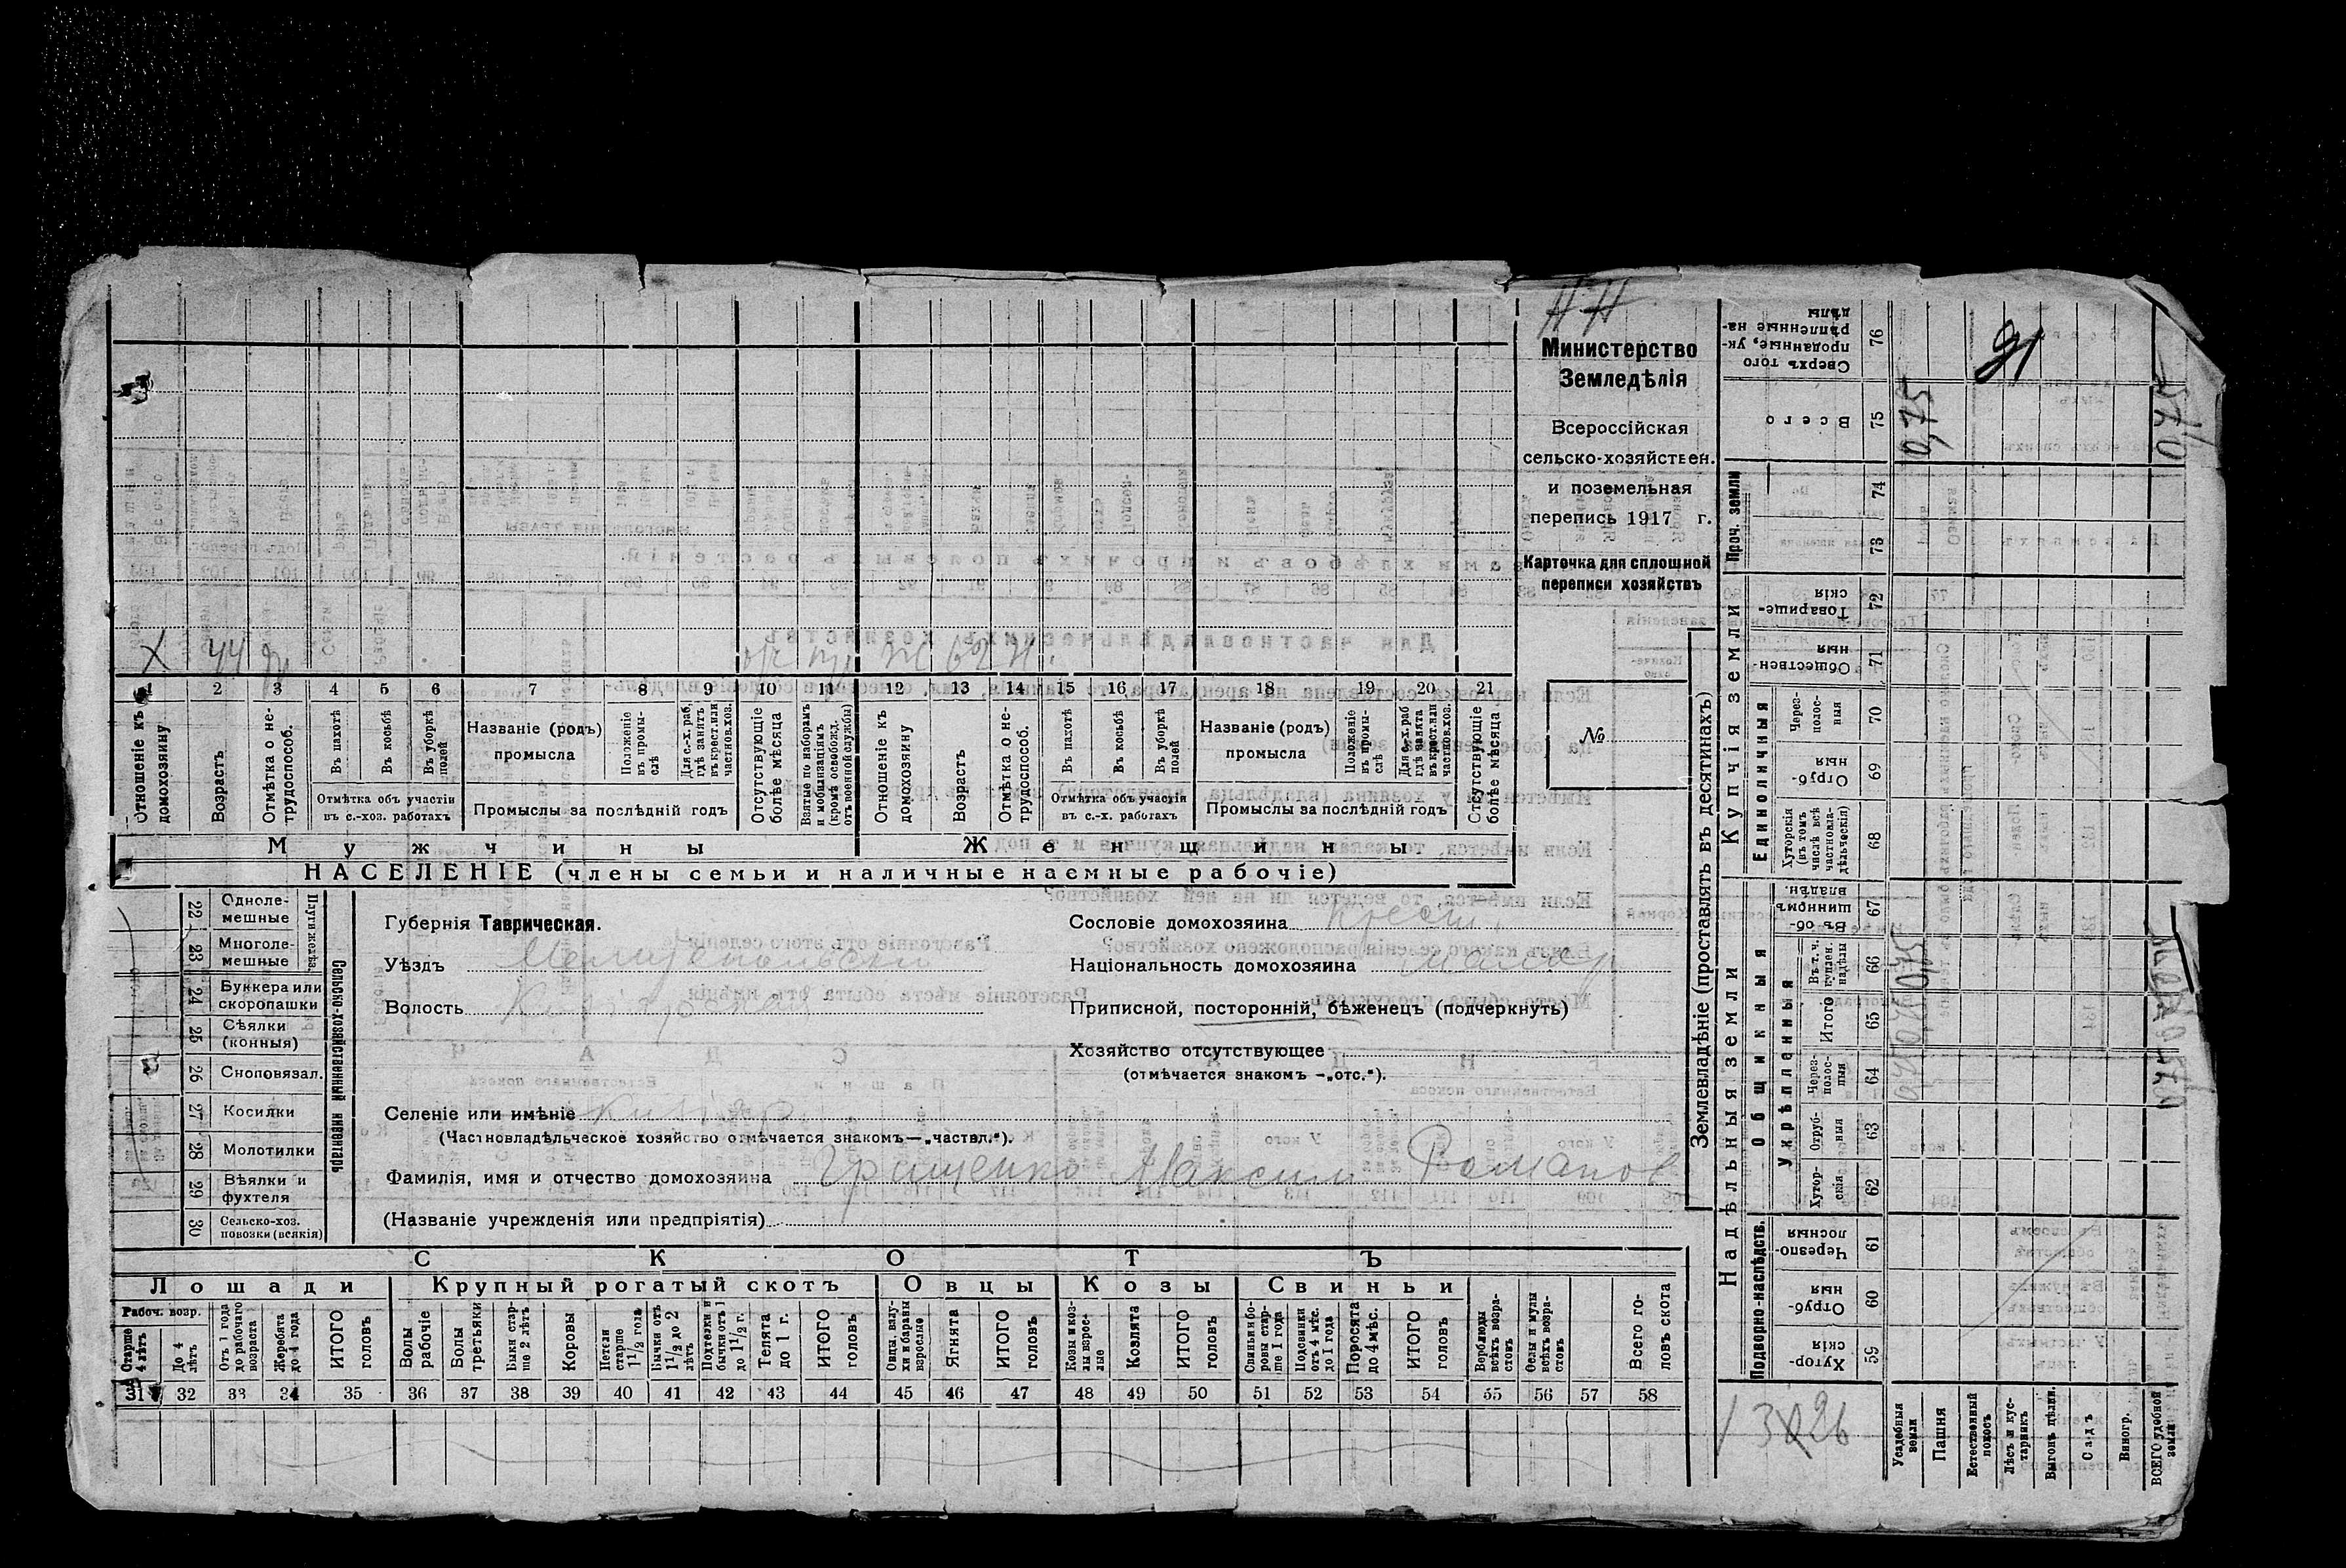 Н Н
Министерство
Земледѣлія
Всероссійская
сельско-хозяйствен.
и поземельная
перепись 1917 г.
Карточка для сплошной
переписи хозяйствъ
№
Х 44
1 2 3 4 5 6 7 8 9 10 11 12 13 14 15 16 17 18 19 20 21
Отношеніе къ домохозяину
Возрастъ
Отмѣтка о не-трудоспособ.
Въ пахотѣ
Въ косьбѣ
Въ уборкѣ полей
Отмѣтка объ участіи
въ с.-хоз. работахъ
Названіе (родъ)
промысла
Положеніе въ промы-слѣ
Для с.-х. раб. гдѣ занятъ въ крест. или частнов. хоз.
Промыслы за послѣдній годъ
Отсутствующіе болѣе мѣсяца
Взятые по наборамъ и мобилизаціямъ (кромѣ освобожд. отъ военной службы)
Отношеніе къ домохозяину
Возрастъ
Отмѣтка о не-трудоспособ.
Въ пахотѣ
Въ косьбѣ
Въ уборкѣ полей
Отмѣтка объ участіи
въ с.-х. работахъ
Названіе (родъ)
промысла
Положеніе въ промы-слѣ
Для с.-х. раб гдѣ занята въ крест. или частнов. хоз.
Промыслы за послѣдній годъ
Отсутствующіе болѣе мѣсяца
Мужчины
Женщины
НАСЕЛЕНІЕ (члены семьи и наличные наемные рабочіе)
22 Одноле-мешные
23 Многоле-мешные
Плуги желѣз.
24 Буккера или скоропашки
25 Сѣялки (конныя)
26 Сноповязал.
27 Косилки
28 Молотилки
29 Вѣялки и фухтеля
30 Сельско-хоз. повозки (всякія)
Сельско-хозяйственный инвентарь
Губернія Таврическая.
Уѣздъ Мелитопольскій
Волость Кизіярская
Сословіе домохозяина Крест.
Національность домохозяина Малор
Приписной, посторонній, бѣженецъ (подчеркнуть)
Хозяйство отсутствующее
(отмѣчается знакомъ -„отс.“).
Селеніе или имѣніе Кизіяр
(Частновладѣльческое хозяйство отмѣчается знакомъ—„частвл.“).
Фамилія, имя и отчество домохозяина Грищенко Максим Романов
(Названіе учрежденія или предпріятія)
СКОТЪ
Лошади
Крупный рогатый скотъ
Овцы
Козы
Свиньи
Рабоч. возр.
Старше 4 лѣтъ
До 4 лѣтъ
Отъ 1 года до рабочаго возраста
Жеребята до 1 года
ИТОГО головъ
Волы рабочіе
Волы третьяки
Быки стар-ше 2 лѣтъ
Коровы
Нетели старше 1 1/2 года
Бычки отъ 1 1/2 до 2 лѣтъ
Подтелки и бычки отъ 1 до 1 1/2 г.
Телята до 1 г.
ИТОГО головъ
Овцы, валу-хи и бараны взрослые
Ягнята
ИТОГО головъ
Козы и коз-лы взрос-лые
Козлята
ИТОГО головъ
Свиньи и бо-ровы стар-ше 1 года
Подсвинки отъ 4 мѣс. до 1 года
Поросята до 4 мѣс.
ИТОГО головъ
Верблюды всѣхъ возра-стовъ
Ослы и мулы всѣхъ возра-стовъ
Всего го-ловъ скота
31 32 33 34 35 36 37 38 39 40 41 42 43 44 45 46 47 48 49 50 51 52 53 54 55 56 57 58
Землевладѣніе (проставлять въ десятинахъ)
Надѣльныя земли
Купчія земли
Проч. земли
Подворно-наслѣдств.
Общинныя
Укрѣпленныя
Единоличныя
Сверхъ того проданные, ук-рѣпленные на-дѣлы 76
Всего 75
74
73
Товарище-скія 72
Обществен-ныя 71
Через-полос-ныя 70
Отруб-ныя 69
Хуторскія (въ томъ числѣ всѣ частновла-дѣльческія) 68
Въ об-щинномъ владѣн. 67
Въ т. ч. куплен. надѣлы 66
Итого 65
Через-полос-ныя 64
Отруб-ныя 63
Хутор-скія 62
Черезпо-лосныя 61
Отруб-ныя 60
Хутор-скія 59
Усадебныя земли
Пашня
Естественный покосъ
Лѣсъ и кус-тарникъ
Выгонъ дѣлим.
Садъ
Виногр.
ВСЕГО удобной земли
91
0,75
0,75
0,75 0,75 0,75